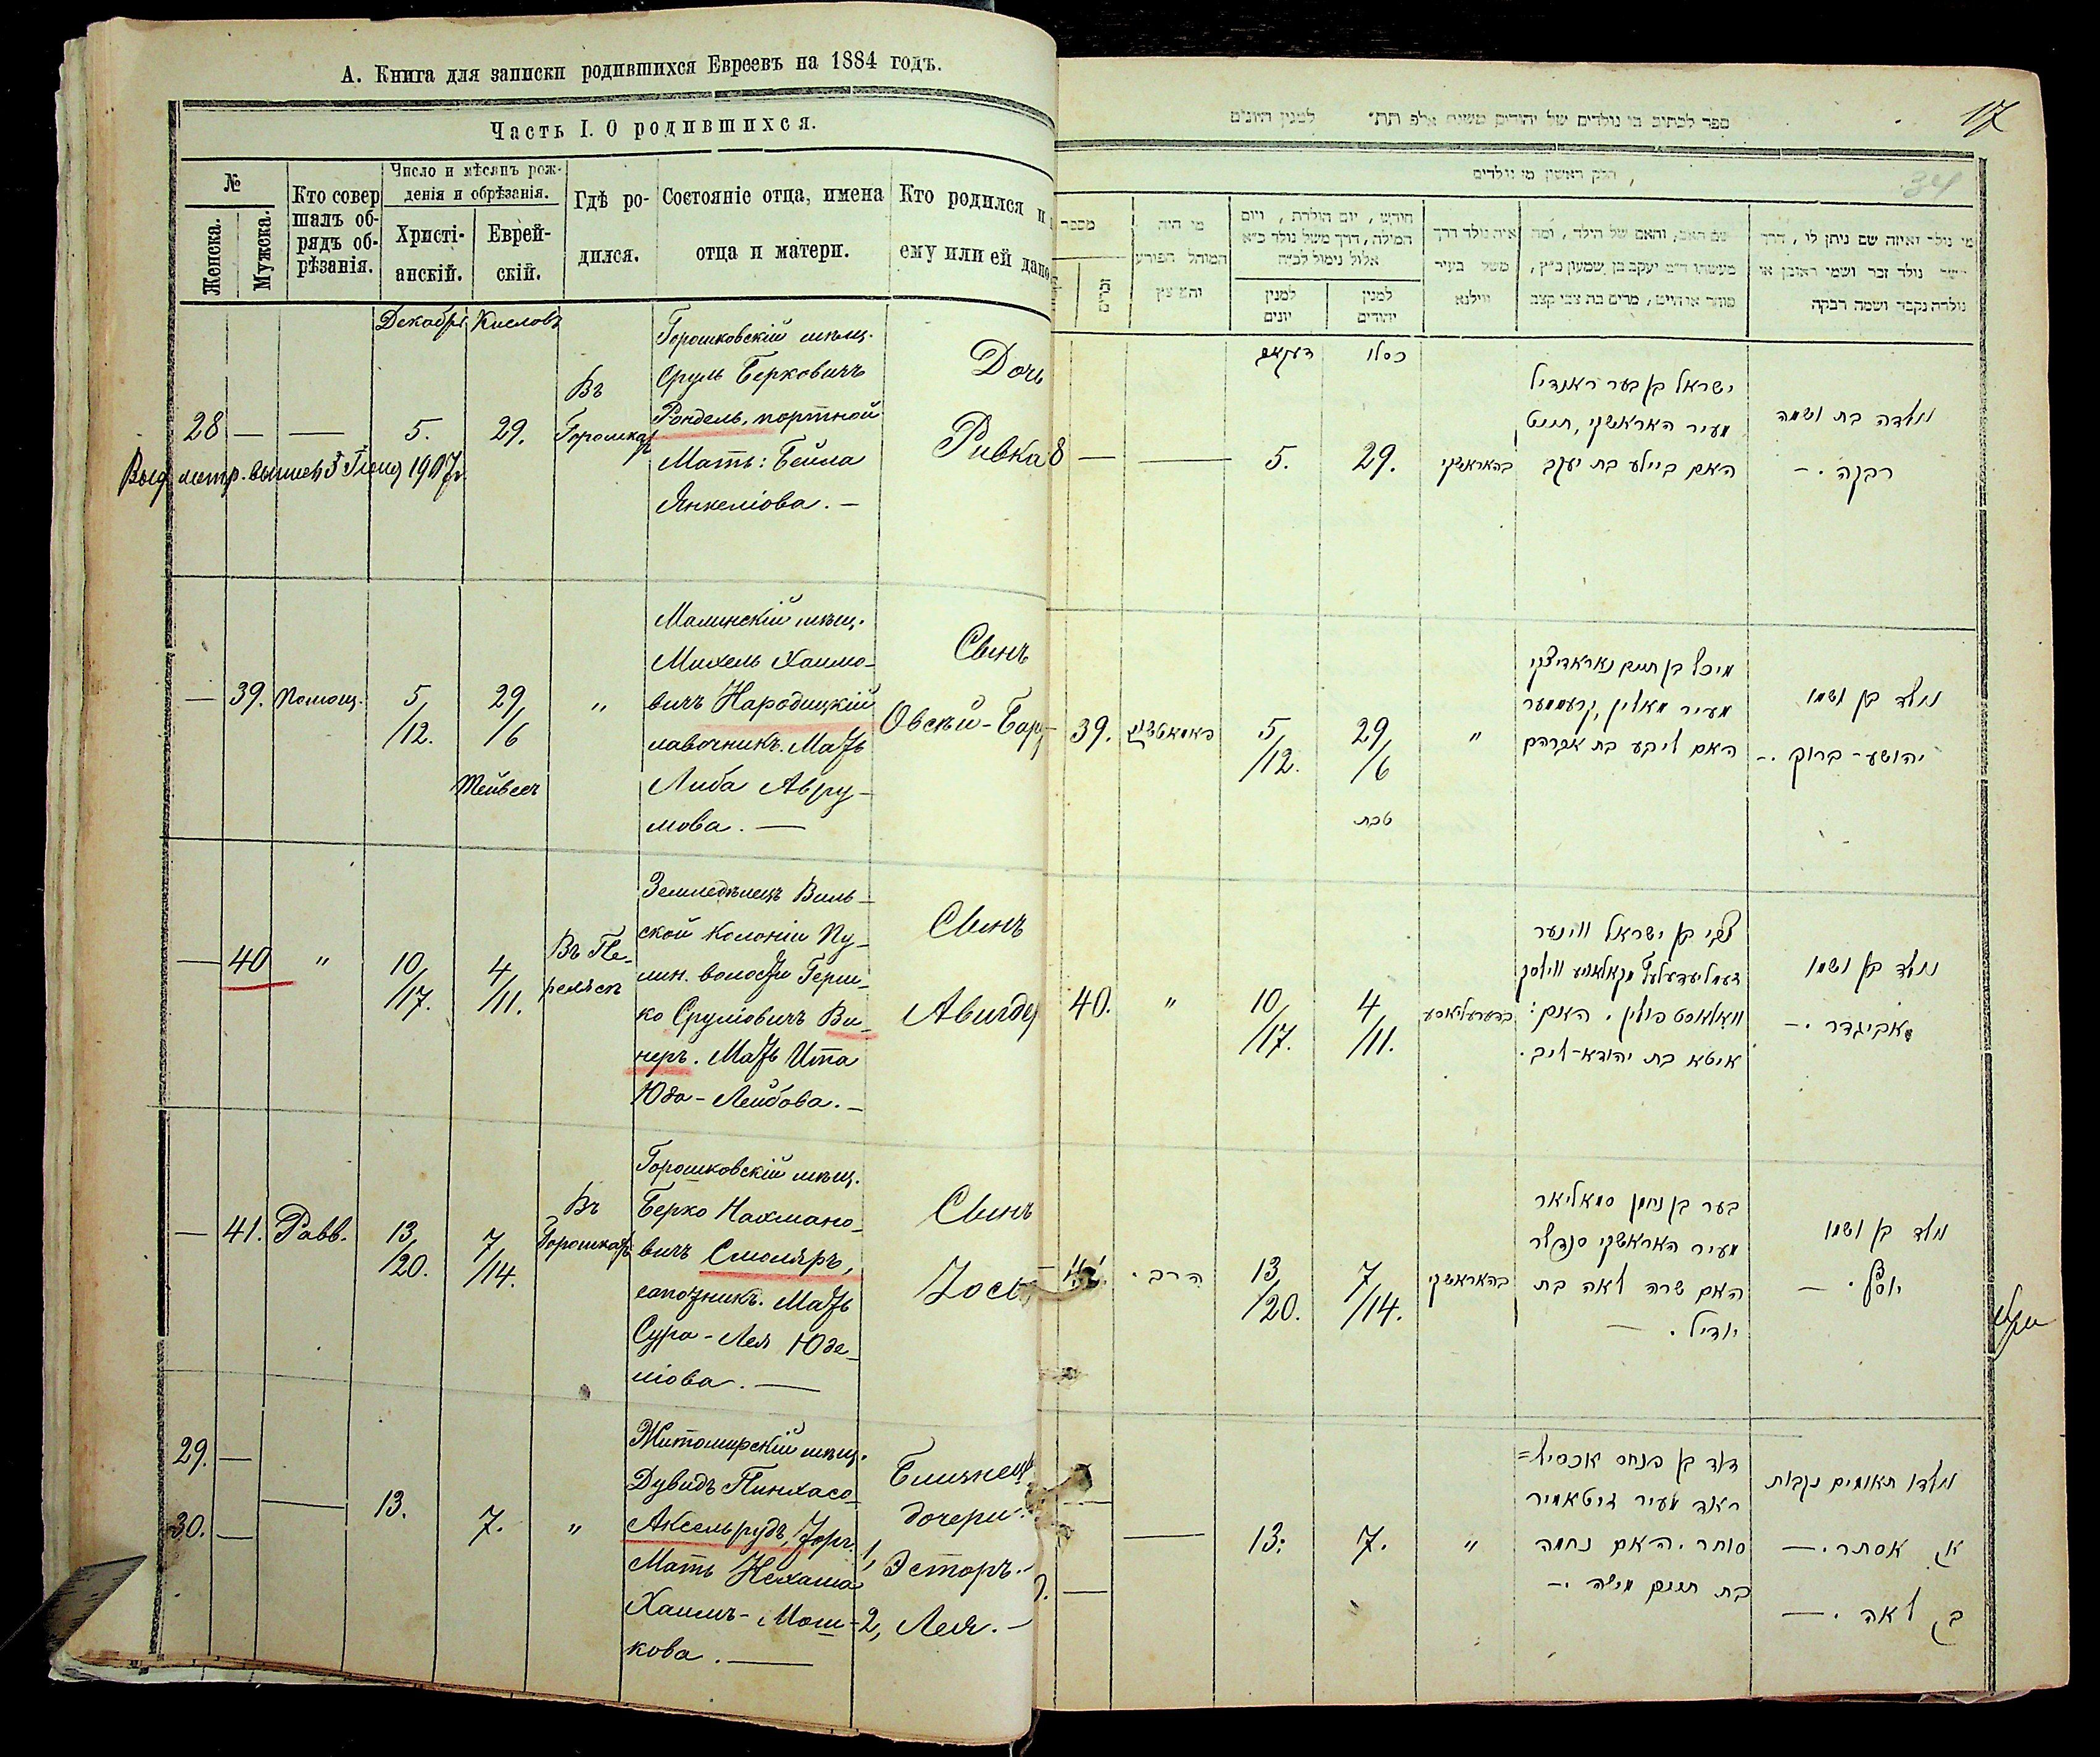 А. Книга для записки родившихся Евреевъ на 1884 годъ.
Часть I. О родившихся.
№
Женска.
Мужска.
Кто совер
шалъ об-
рядъ об-
рѣзанія.
Число и мѣсяцъ рож-
денія и обрѣзанія.
Христі-
анскій.
Еврей-
скій.
Гдѣ ро-
дился.
Состояніе отца, имена
отца и матери.
Кто родился и
ему или ей дано
Декабрь Кисловъ
28 — — 5. 29.
Въ
Горошкахъ
Горошковскій мѣщ.
Сруль Берковичъ
Рондель, портной
Мать: Бейла
Янкеліова. —
Дочь
Ривка
метр. 1907г.
— 39. Помощ. 5/12. 29/6 "
Тейвесъ
Малинскій мѣщ.
Михель Хаимо-
вичъ Народицкій
лавочникъ. Мать
Либа Авру-
мова. —
Сынъ
Овсѣй-Бару
— 40 " 10/17. 4/11.
Въ Пе-
Земледѣлецъ Виль-
ской Колоніи Пу-
лин. волости Герш-
ко Сруліовичъ Ви-
неръ. Мать Ита
Юдо-Лейбова. —
Сынъ
Авигдер
— 41. Равв. 13/20. 7/14.
Въ
Горошкахъ
Горошковскій мѣщ.
Берко Нахмано-
вичъ Смоляръ,
сапожникъ. Мать
Сура-Лея Юде-
ліова. —
Сынъ
Іось
29. —
30. — — 13. 7. "
Житомирскій мѣщ.
Дувидъ Пинхасо-
Аксельрудъ, торг.
Мать Нехама
Хаимъ-Мош-
кова. —
Близнец
дочери.
1, Эстеръ. —
2, Лея. —
17
34
ספר לכתוב בו נולדים של יהודים משנת אלף תת״ למנין היונים
חלק ראשון מי נולדים
מספר
מי היה
המוהל הפורע
והמוצץ
חודש, יום הולדת, ויום
המילה, דרך משל נולד כ״א
אלול נימול לכ״ח
למנין
יונים
למנין
יהודים
איה נולד דרך
משל בעיר
ווילנא
שם האב, והאם של הילד, ומה
מעשהו ד״מ יעקב בן שמעון כ״ץ,
סוחר או חייט, מרים בת צבי קצב
מי נולד ואיזה שם ניתן לו, דרך
משל נולד זכר ושמו ראובן או
נולדה נקבה ושמה רבקה
דעקאב כסלו
8 — — 5. 29. בהאראשקי
ישראל בן בער ראנדיל
מעיר האראשקי, חייט
האם ביילע בת יעקב
נולדה בת ושמה
רבקה. —
39. 5/12. 29/6 "
טבת
מיכל בן חיים נאראדיצקי
מעיר מאלין, קרעמער
האם ליבע בת אברהם
נולד בן ושמו
יהושע-ברוך. —
40. " 10/17. 4/11.
צבי בן ישראל ווינער
וואלאסט פולין. האם:
איטא בת יהודא-ליב.
נולד בן ושמו
אביגדר. —
41. הרב. 13/20. 7/14. בהאראשקי
בער בן נחמן סמאליאר
מעיר האראשקי סנדלר
האם שרה לאה בת
יודיל. —
נולד בן ושמו
יוסף. —
— — 13. 7. "
דוד בן פנחס אכסיל=
ראד מעיר זיטאמיר
סוחר. האם נחמה
בת חיים משה. —
נולדו תאומים נקבות
א) אסתר. —
ב) לאה. —